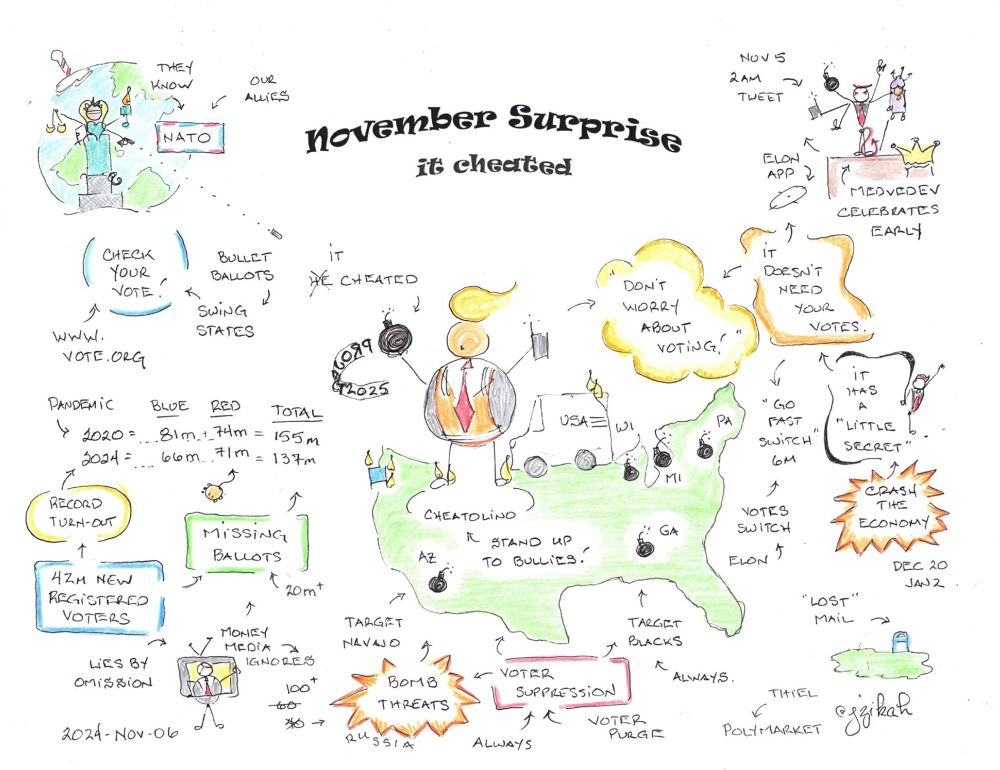 November Surprise
it cheated
THEY
KNOW
OUR
ALLIES
NATO
NOV 5
2AM
TWEET
ELON
APP
MEDVEDEV
CELEBRATES
EARLY
CHECK
YOUR
VOTE!
WWW.
VOTE.ORG
BULLET
BALLOTS
SWING
STATES
IT
HE CHEATED
PRO24
CORP
T2025
"DON'T
WORRY
ABOUT
VOTING!"
IT
DOESN'T
NEED
YOUR
VOTES.
IT
HAS
A
"LITTLE
SECRET"
"GO
FAST
SWITCH"
6M
VOTES
SWITCH
ELON
CRASH
THE
ECONOMY
DEC 20
JAN 2
PANDEMIC BLUE RED TOTAL
2020 = ....81m + 74m = 155m
2024 = ....66m...71m = 137m
RECORD
TURN-OUT
42M NEW
REGISTERED
VOTERS
MISSING
BALLOTS
20m+
USA
WI
MI
PA
GA
AZ
CHEATOLINO
STAND UP
TO BULLIES!
MONEY
MEDIA
IGNORES
LIES BY
OMISSION
2024-NOV-06
TARGET
NAVAJO
BOMB
THREATS
100+
60
RUSSIA
VOTER
SUPPRESSION
ALWAYS
VOTER
PURGE
TARGET
BLACKS
ALWAYS.
"LOST"
MAIL
THIEL
POLYMARKET
@jzikah